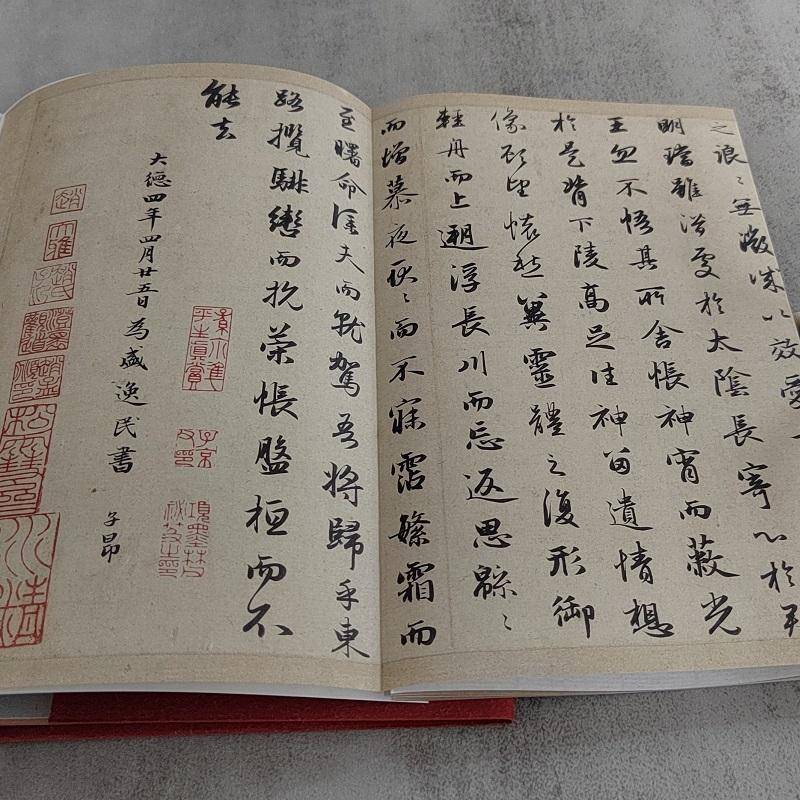 之浪〻無微誠以效愛
明璫雖潛處於太陰長寄心於君
王忽不悟其所舍悵神宵而蔽光
於是背下陵高足往神留遺情想
像顧望懷愁冀靈體之復形御
輕舟而上遡浮長川而忘返思綿〻
而增慕夜耿〻而不寐霑繁霜而
至曙命僕夫而就駕吾將歸乎東
路攬騑轡而抗策悵盤桓而不
能去
平生真賞
子京父印
大德四年四月廿五日為盛逸民書 子昂
趙
大雅
松雪齋